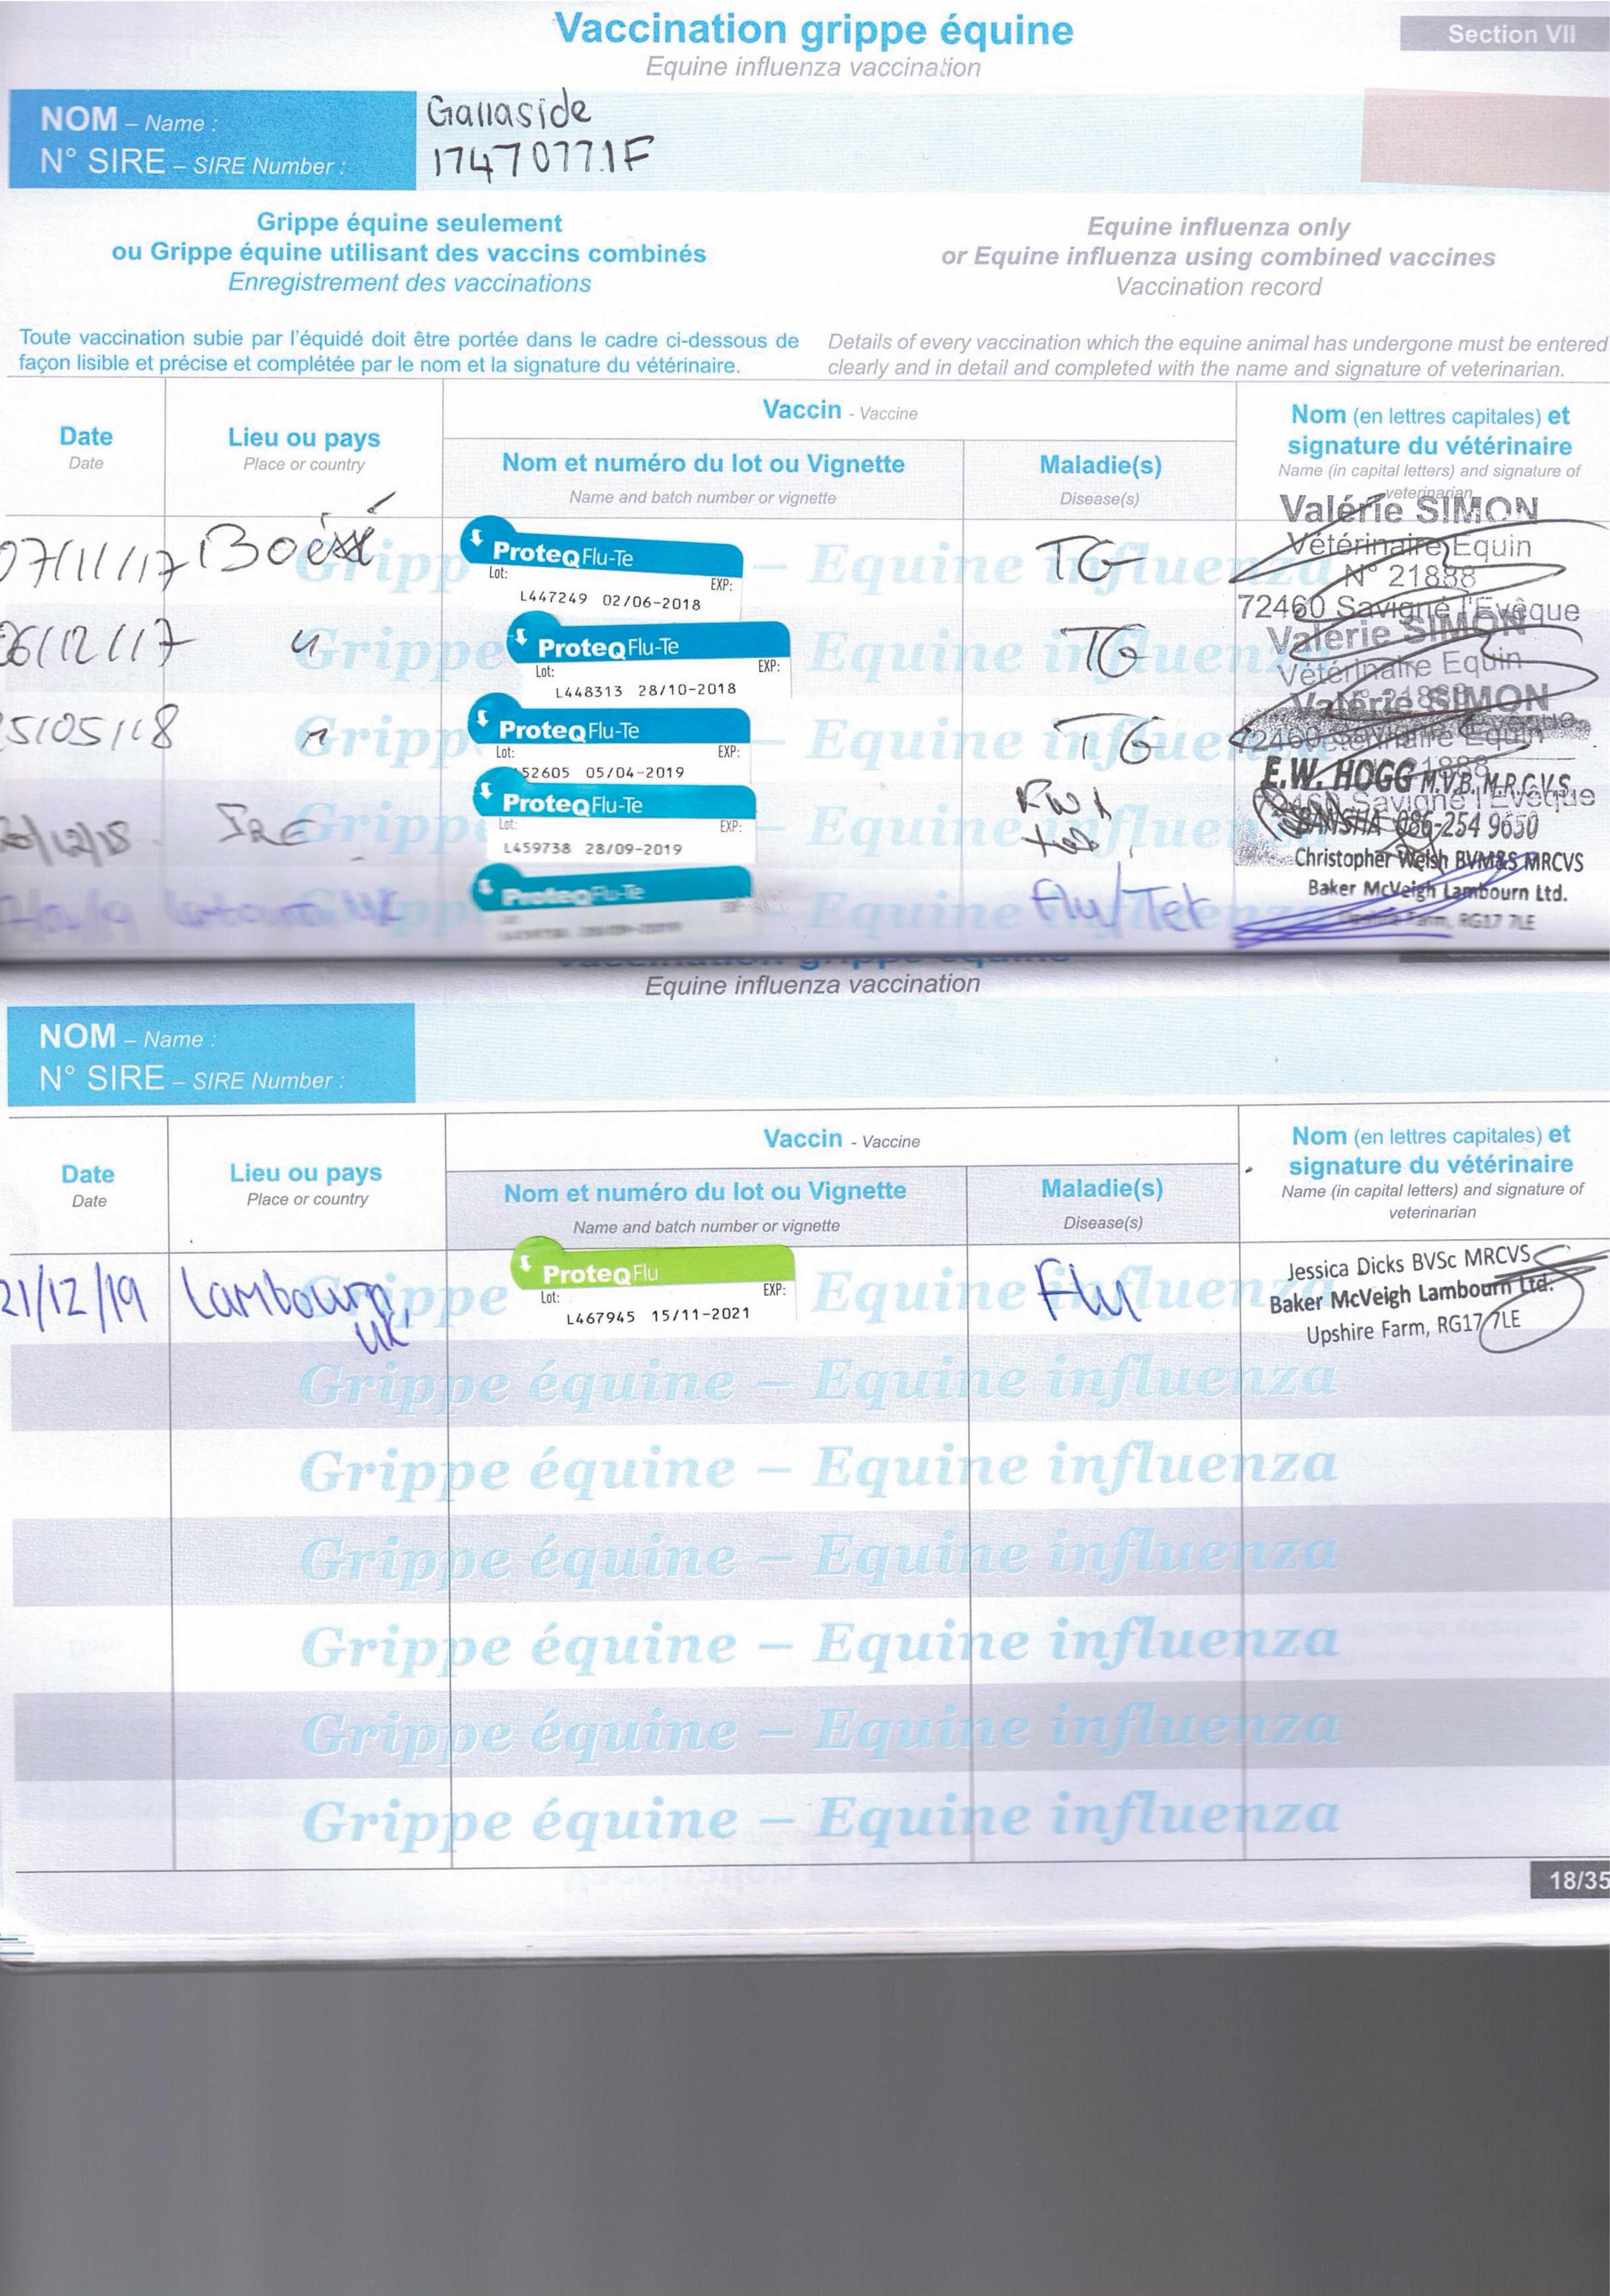 Vaccination grippe équine
Section VII
Equine influenza vaccination
NOM – Name :
Gallaside
N° SIRE – SIRE Number :
17470771F
Grippe équine seulement
ou Grippe équine utilisant des vaccins combinés
Enregistrement des vaccinations
Equine influenza only
or Equine influenza using combined vaccines
Vaccination record
Toute vaccination subie par l'équidé doit être portée dans le cadre ci-dessous de
façon lisible et précise et complétée par le nom et la signature du vétérinaire.
Details of every vaccination which the equine animal has undergone must be entered
clearly and in detail and completed with the name and signature of veterinarian.
Date
Date
Lieu ou pays
Place or country
Vaccin - Vaccine
Nom et numéro du lot ou Vignette
Name and batch number or vignette
Maladie(s)
Disease(s)
Nom (en lettres capitales) et
signature du vétérinaire
Name (in capital letters) and signature of
veterinarian
07/11/17
ProteqFlu-Te
Lot:
EXP:
L447249 02/06-2018
TG
Equine influenza
Valérie SIMON
Vétérinaire Equin
N° 21888
72460 Savigné l'Evêque
06/12/17
Grippe
ProteqFlu-Te
Lot:
EXP:
L448313 28/10-2018
TG
Equine influenza
Valérie SIMON
Vétérinaire Equin
5/05/18
Grippe
ProteqFlu-Te
Lot:
EXP:
52605 05/04-2019
TG
Equine influenza
Valérie SIMON
/12/18
IRE
Grippe
ProteqFlu-Te
Lot:
EXP:
L459738 28/09-2019
Equine influenza
E.W. HOGG M.V.B. M.R.C.V.S.
BANSHA 086-254 9650
Lambourn UK
ProteqFlu-Te
Equine influenza
Flu/Tet
Christopher Welsh BVM&S MRCVS
Baker McVeigh Lambourn Ltd.
Upshire Farm, RG17 7LE
Vaccination grippe équine
Equine influenza vaccination
NOM – Name :
N° SIRE – SIRE Number :
Date
Date
Lieu ou pays
Place or country
Vaccin - Vaccine
Nom et numéro du lot ou Vignette
Name and batch number or vignette
Maladie(s)
Disease(s)
Nom (en lettres capitales) et
signature du vétérinaire
Name (in capital letters) and signature of
veterinarian
21/12/19
Lambourn,
UK
Grippe
ProteqFlu
Lot:
EXP:
L467945 15/11-2021
Equine influenza
Flu
Jessica Dicks BVSc MRCVS
Baker McVeigh Lambourn Ltd.
Upshire Farm, RG17 7LE
Grippe équine – Equine influenza
Grippe équine – Equine influenza
Grippe équine – Equine influenza
Grippe équine – Equine influenza
Grippe équine – Equine influenza
Grippe équine – Equine influenza
18/35